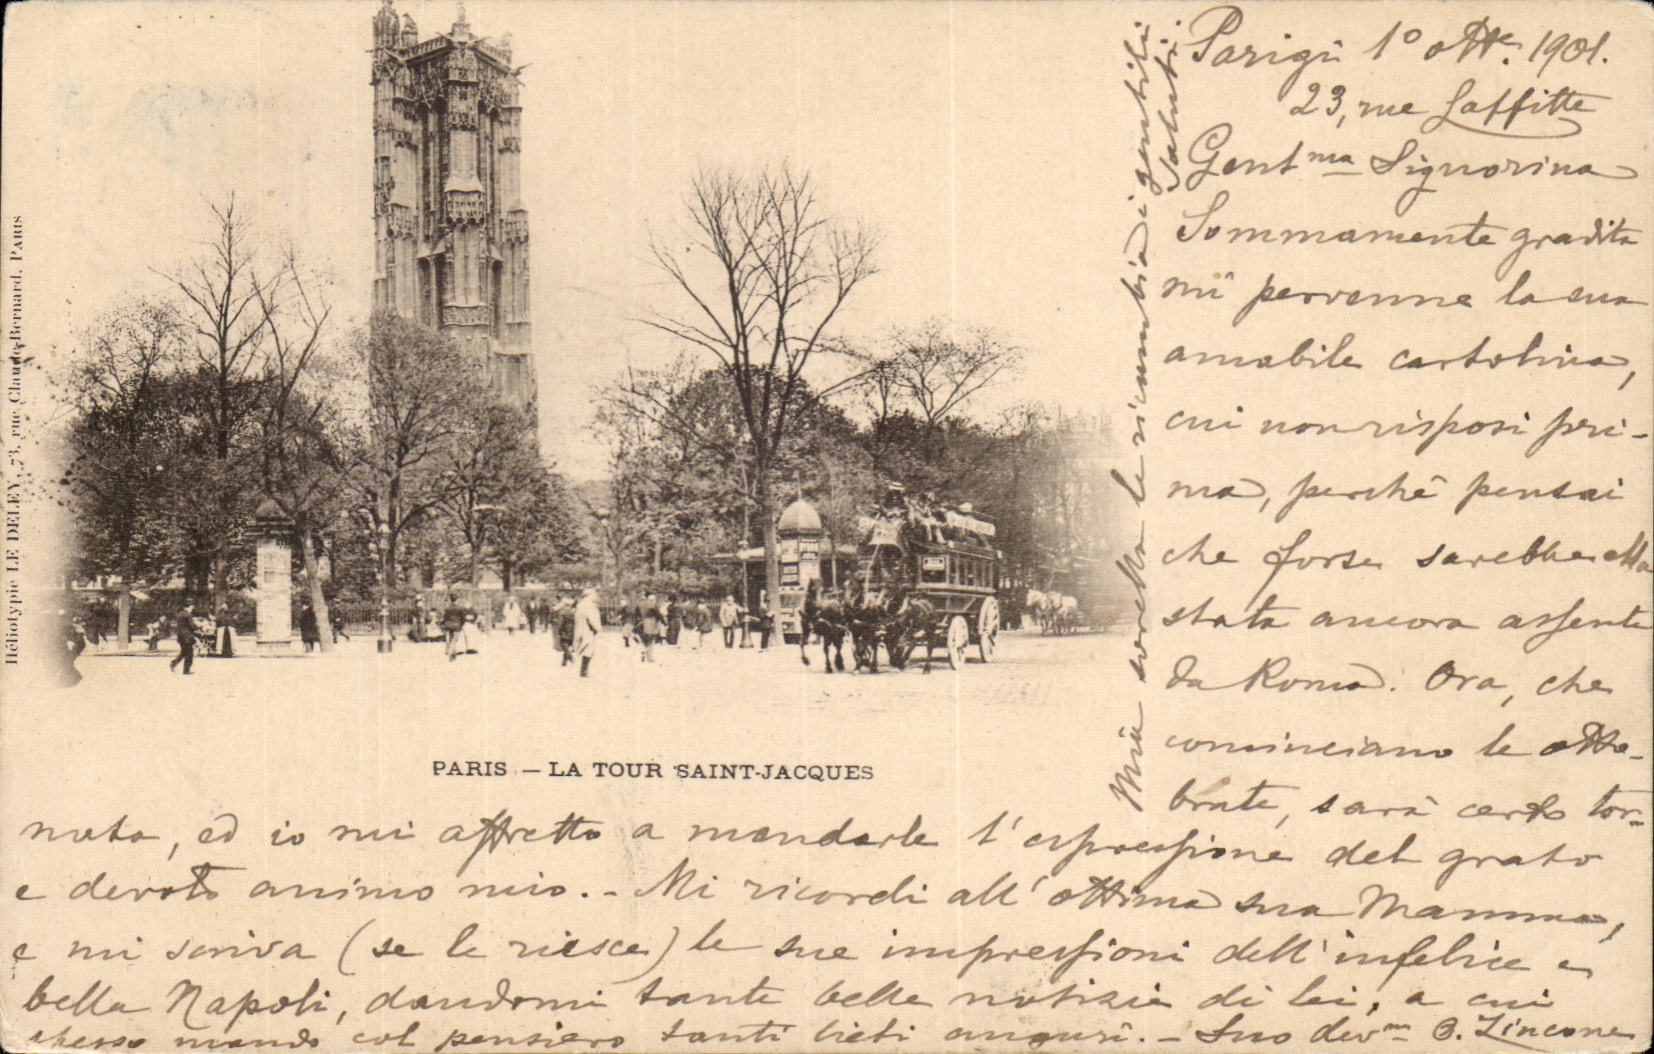 Parigi 1º ott.e 1901.
23, rue Laffitte
Gent.ma Signorina
Sommamente gradita
mi pervenne la sua
amabile cartolina,
cui non risposi pri-
ma, perchè pensai
che forse sarebbe ella
stata ancora assente
da Roma. Ora, che
cominciano le otto-
brate, sarà certo tor-
nata, ed io mi affretto a mandarle l'espressione del grato
e devoto animo mio. - Mi ricordi all'ottima sua Mamma,
e mi scriva (se le riesce) le sue impressioni dell'infelice e
bella Napoli, dandomi tante belle notizie di lei, a cui
spesso mando col pensiero tanti lieti auguri. - Suo dev.mo B. Zincone
Mia sorella le ricambia i gentili
saluti
PARIS - LA TOUR SAINT-JACQUES
Héliotypie LE DELEY, 73, rue Claude-Bernard, PARIS